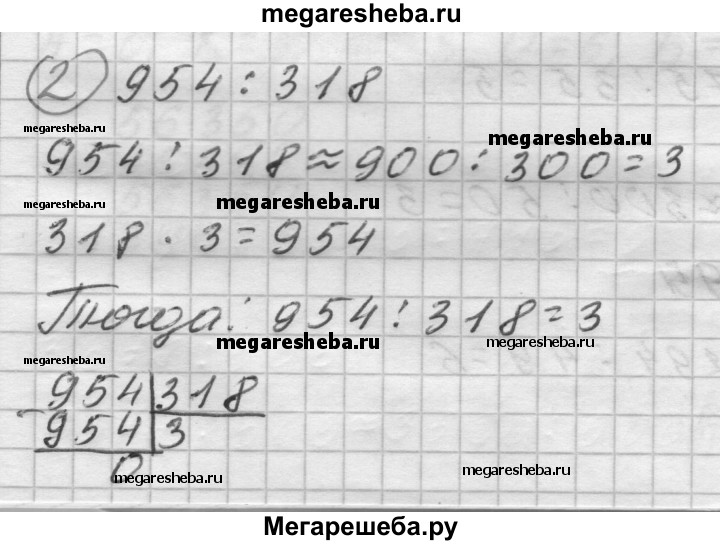 megaresheba.ru
2) 954 : 318
megaresheba.ru
megaresheba.ru
954 : 318 ≈ 900 : 300 = 3
megaresheba.ru
megaresheba.ru
318 · 3 = 954
Тогда: 954 : 318 = 3
megaresheba.ru
megaresheba.ru
megaresheba.ru
954 | 318
- 954 | 3
0
megaresheba.ru
megaresheba.ru
Мегарешеба.ру